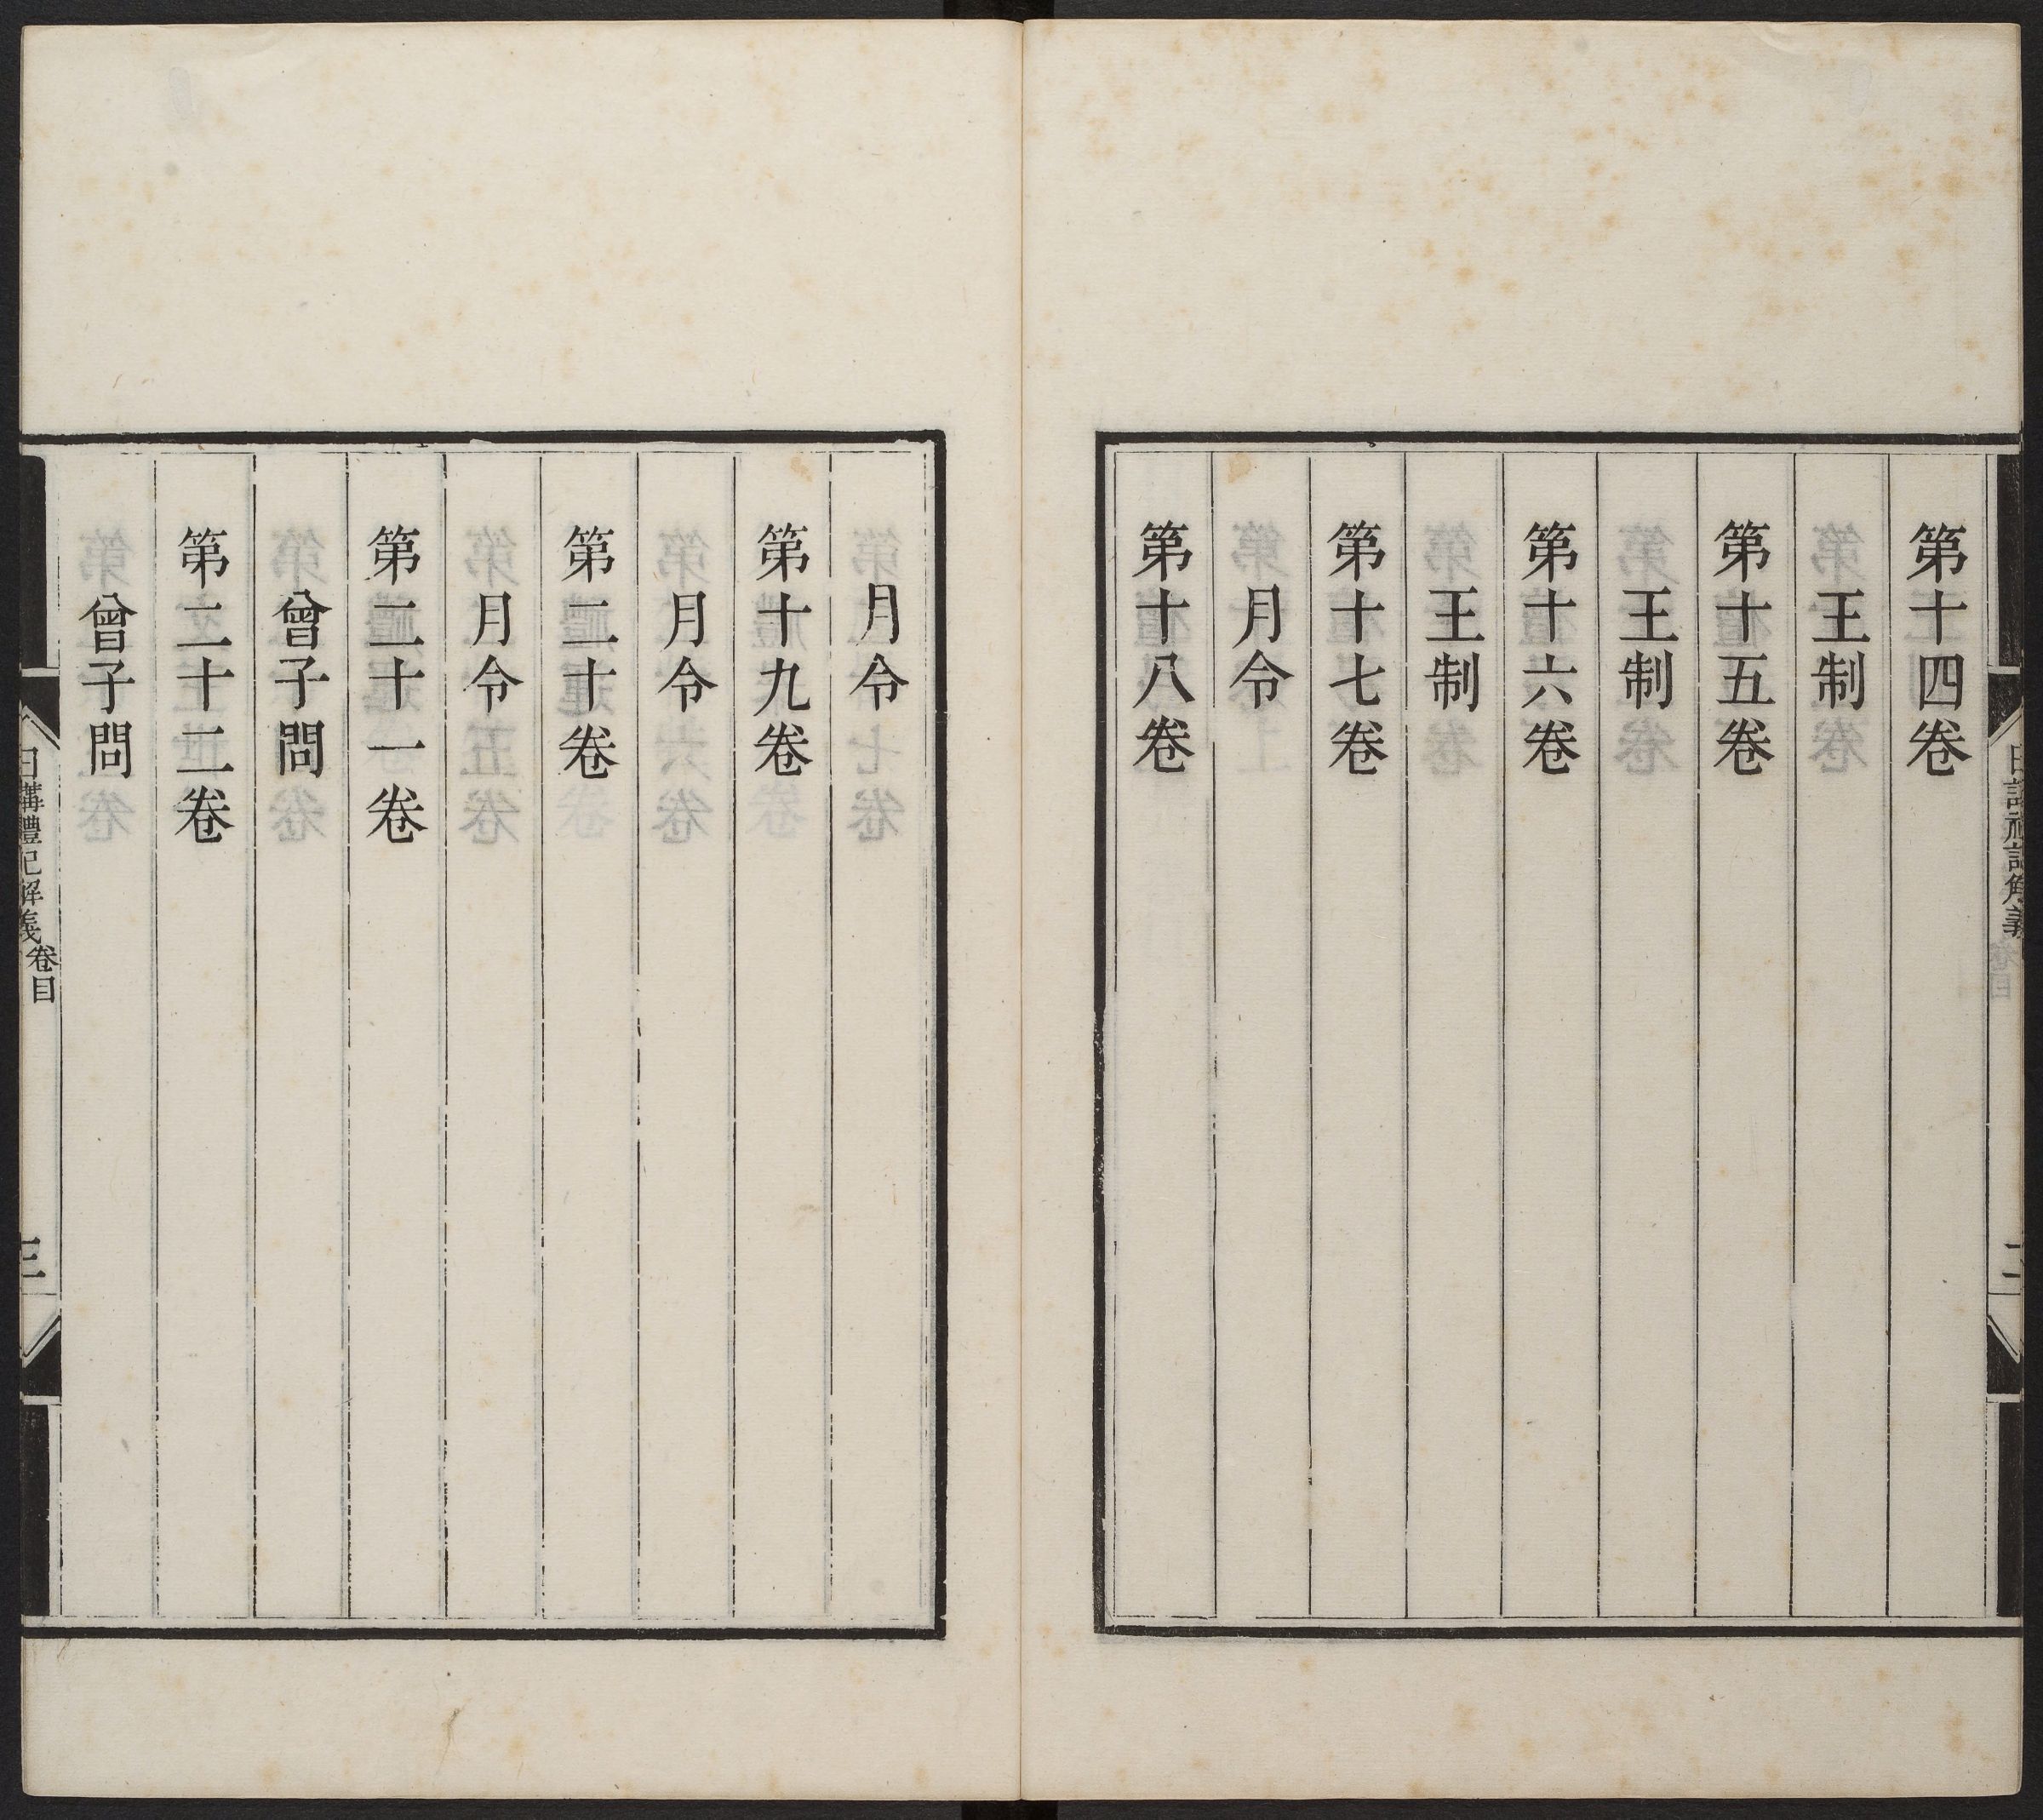 第十四卷
王制
第十五卷
王制
第十六卷
王制
第十七卷
月令
第十八卷
月令
第十九卷
月令
第二十卷
月令
第二十一卷
曾子問
第二十二卷
曾子問
日講禮記解義 卷目
三